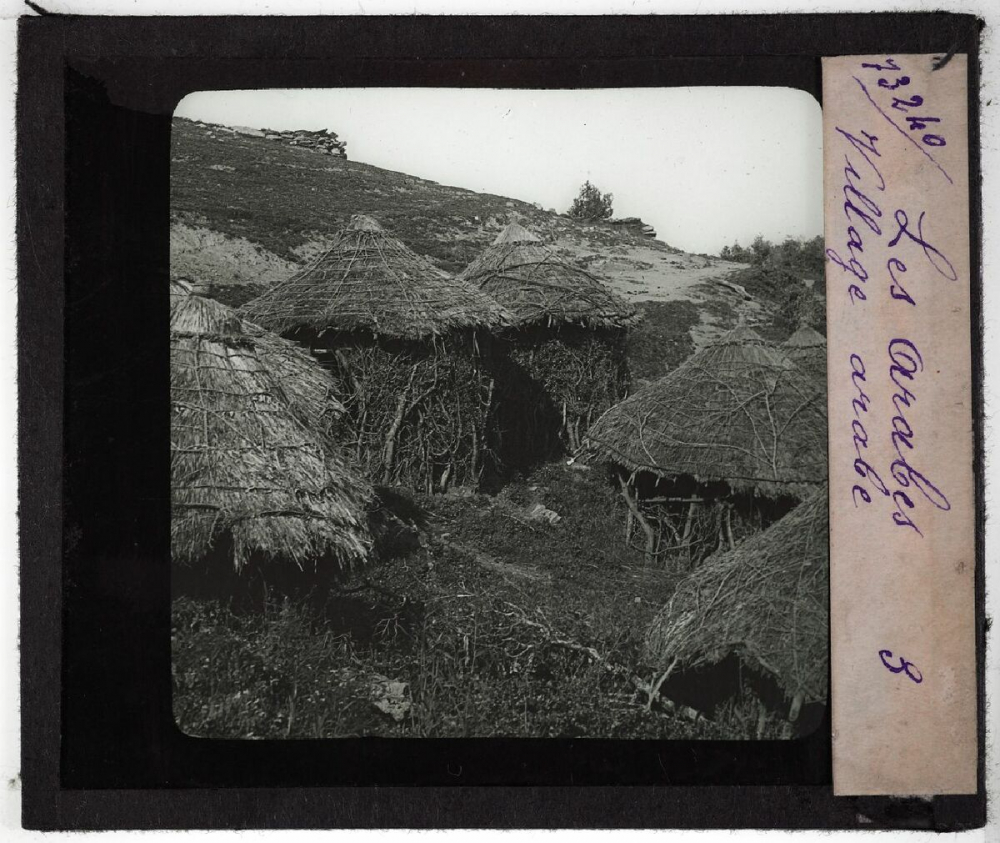 13240/ Les Arabes
Village arabe 3